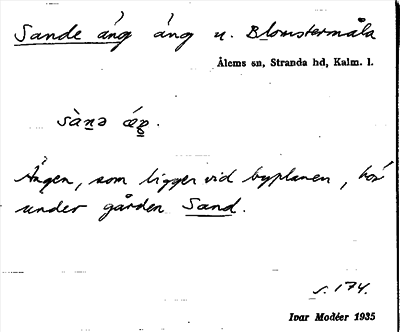 Sande äng äng u. Blomstermåla
Ålems sn, Stranda hd, Kalm. l.
Ängen, som ligger vid byplanen, hör
under gården Sand.
s. 174.
Ivar Modéer 1935